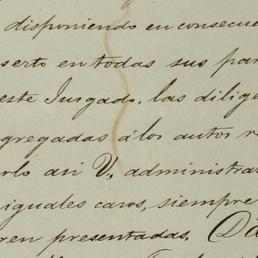 disponiendo en consecue
serto en todas sus par
este Juzgado, las dilige
gregadas á los autos r
rlo asi V., administra
iguales casos, siempre
ren presentadas. Da